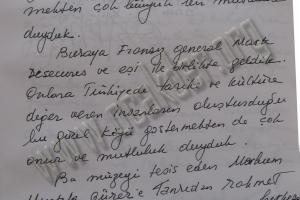 mekten çok
duyduk.
Buraya Fransız general Mark
ve eşi ile birlikte geldik.
Onlara Türkiyede tarihi ve kültüre
değer veren insanların oluşturduğu
bu güzel köyü göstermekten de çok
onur ve mutluluk duyduk.
Bu müzeyi tesis eden Merhum
Gürer'e Tanrıdan rahmet